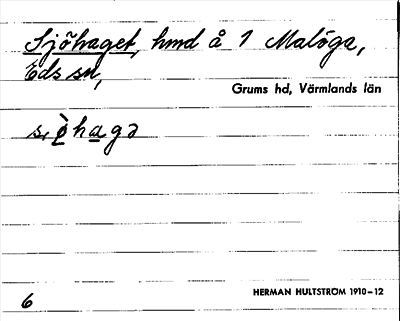 Sjöhaget, hmd å 1 Malöga,
Eds sn,
Grums hd, Värmlands län
HERMAN HULTSTRÖM 1910–12
6